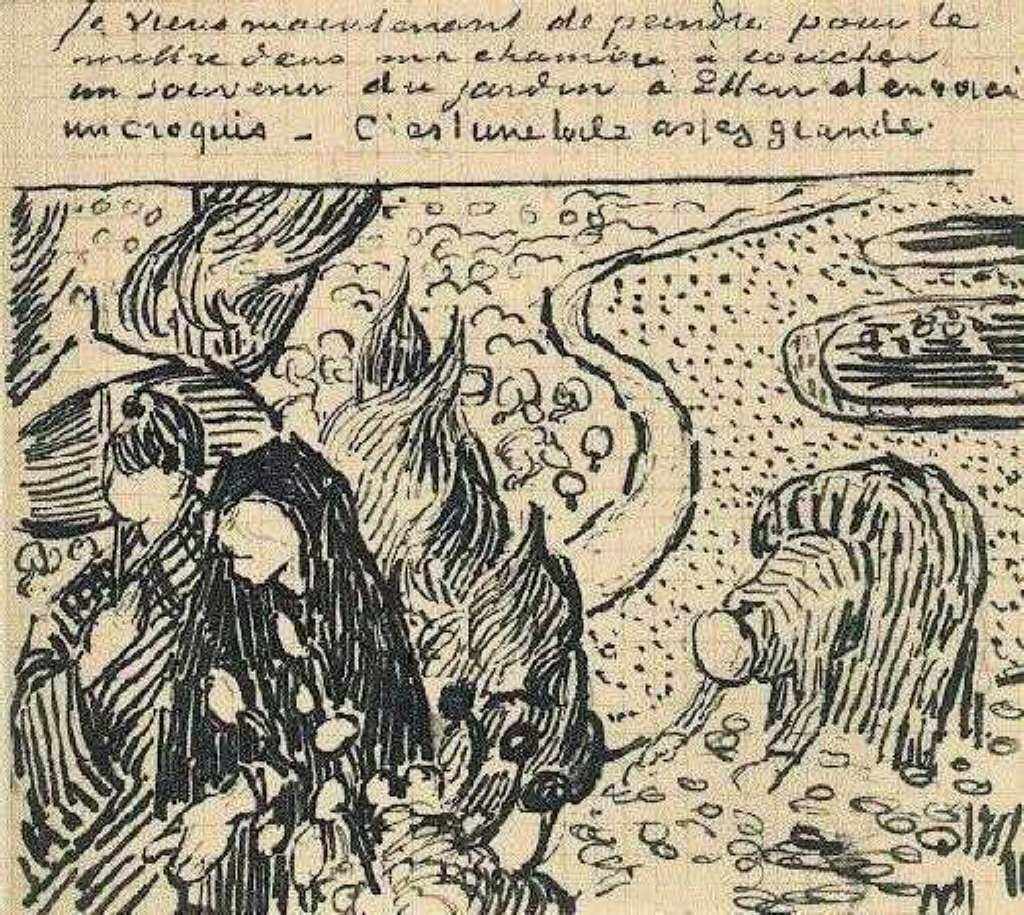 Je viens maintenant de peindre pour le
mettre dans ma chambre à coucher
un souvenir du jardin à Etten et en voici
un croquis _ C'est une toile assez grande.